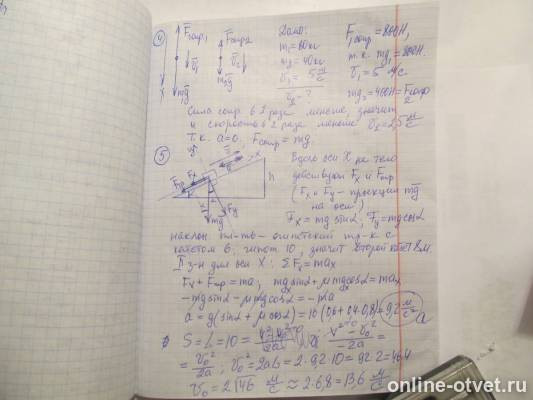 ④ F̅сопр₁ F̅сопр₂ Дано: F₁сопр = 800Н,
m₁ = 80кг т.к. mg₁ = 800Н.
m₂ = 40кг V₁ = 5 м/с.
V₁ = 5 м/с mg₂ = 400Н = Fсопр₂
V₂ - ?
Сила сопр в 2 раза меньше, значит
и скорость в 2 раза меньше V₂ = 2,5 м/с
Т.к. a=0, Fсопр = mg.
⑤ Вдоль оси X на тело
действуют Fx и Fтр
(Fx и Fy - проекции mg
на оси)
Fx = mg sinα, Fy = mg cosα
наклон пл-ть - египетский тр-к с
катетом 6, гипот 10, значит второй катет 8м.
II з-н для оси X: ΣFx = max
Fx + Fтр = ma, mg sinα + μmg cosα = max
-mg sinα - μmg cosα = -ma
a = g(sinα + μ cosα) = 10(0,6 + 0,4·0,8) = 9,2 м/с²
S = L = 10 =
= V₀²/2a; V₀² = 2aL = 2·9,2·10 = 92·2 = 46·4
V₀ = 2√46 м/с ≈ 2·6,8 = 13,6 м/с
online-otvet.ru